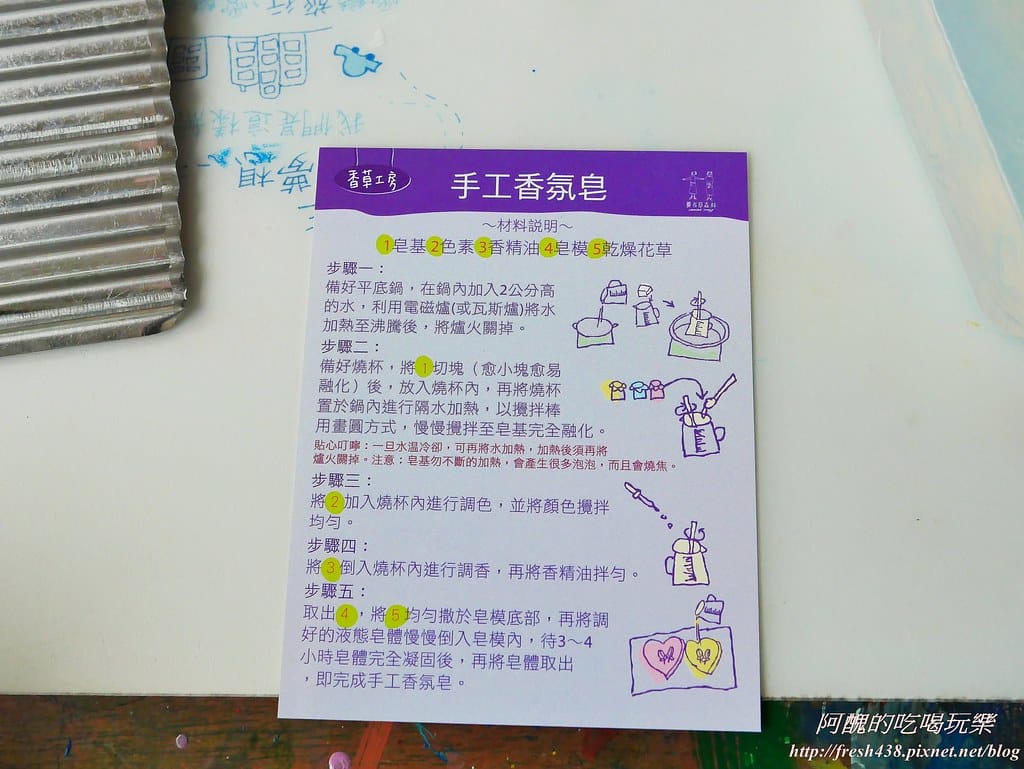 我們是這樣
夢想
香草工房
手工香氛皂
薰衣草森林
～材料說明～
1皂基2色素3香精油4皂模5乾燥花草
步驟一：
備好平底鍋，在鍋內加入2公分高
的水，利用電磁爐(或瓦斯爐)將水
加熱至沸騰後，將爐火關掉。
步驟二：
備好燒杯，將1切塊（愈小塊愈易
融化）後，放入燒杯內，再將燒杯
置於鍋內進行隔水加熱，以攪拌棒
用畫圓方式，慢慢攪拌至皂基完全融化。
貼心叮嚀：一旦水溫冷卻，可再將水加熱，加熱後須再將
爐火關掉。注意：皂基勿不斷的加熱，會產生很多泡泡，而且會燒焦。
步驟三：
將2加入燒杯內進行調色，並將顏色攪拌
均勻。
步驟四：
將3倒入燒杯內進行調香，再將香精油拌勻。
步驟五：
取出4，將5均勻撒於皂模底部，再將調
好的液態皂體慢慢倒入皂模內，待3～4
小時皂體完全凝固後，再將皂體取出
，即完成手工香氛皂。
阿醜的吃喝玩樂
http://fresh438.pixnet.net/blog